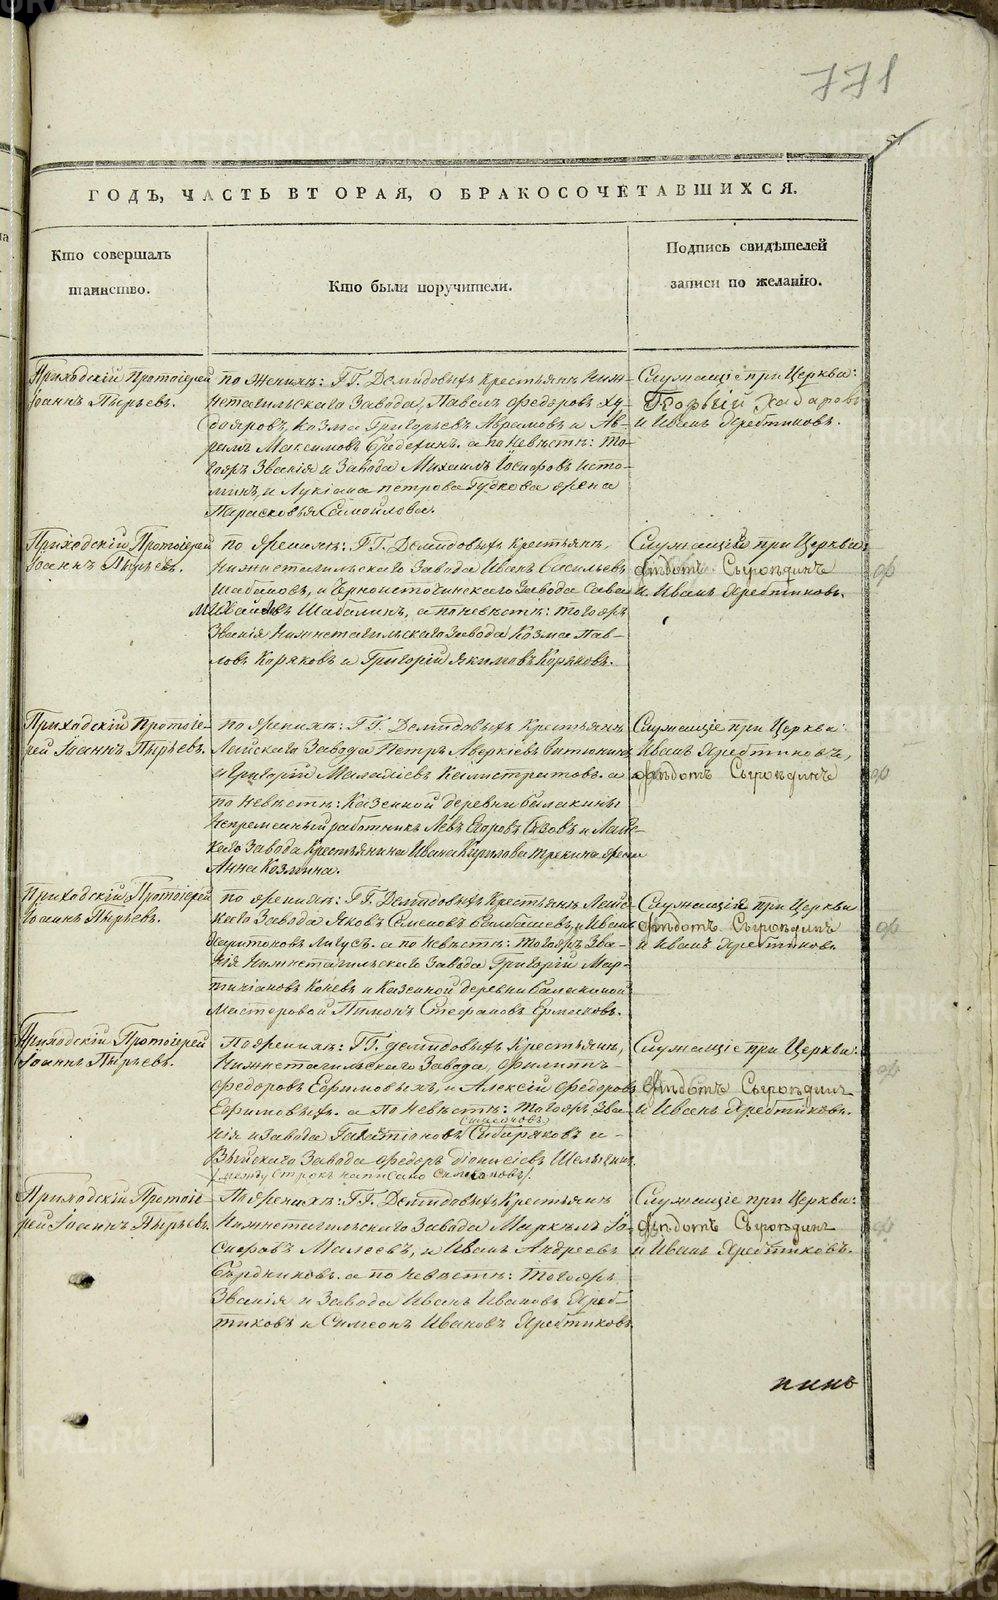 771
ГОДЪ, ЧАСТЬ ВТОРАЯ, О БРАКОСОЧЕТАВШИХСЯ.
Кто совершалъ
таинство.
Кто были поручители.
Подпись свидѣтелей
записи по желанію.
Приходскій Протоіерей
Іоаннъ Пырьевъ.
по женихѣ: ГГ. Демидовыхъ крестьяне Ниж-
нетагильскаго Завода, Павелъ Федоровъ Ху-
дояровъ, Козма Григорьевъ Абрамовъ и Ав-
Максимовъ а по невѣстѣ: то-
гоже Званія и Завода Михаилъ Іосифовъ Исто-
минъ, и Лукіана Петрова Гудкова жена
Парасковья Самойлова.
Служащіе при Церкви:
Хабаровъ
и Иванъ Хребтиковъ.
Приходскій Протоіерей
Іоаннъ Пырьевъ.
по женихѣ: ГГ. Демидовыхъ крестьяне,
Нижнетагильскаго Завода Иванъ Васильевъ
Шабалинъ, и Черноисточинскаго Завода Сава
Михайловъ Шабалинъ, а по невѣстѣ: тогоже
Званія Нижнетагильскаго Завода Козма Пав-
ловъ Коряковъ и Григорій Якимовъ Коряковъ.
Служащіе при Церкви:
Ѳедотъ Сыроѣдинъ
и Иванъ Хребтиковъ.
Приходскій Протоіе-
рей Іоаннъ Пырьевъ.
по женихѣ: ГГ. Демидовыхъ Крестьяне
Лайскаго Завода Петръ Аверкіевъ
и Григорій Калистратовъ. а
по невѣстѣ: Казенной деревни Балакиной
непремѣнный работникъ Левъ Егоровъ и Лай-
скаго Завода Крестьянина Ивана Кирилова Трекина жена
Анна Козмина.
Служащіе при Церкви:
Иванъ Хребтиковъ,
Ѳедотъ Сыроѣдинъ
Приходскій Протоіерей
Іоаннъ Пырьевъ.
по женихѣ: ГГ. Демидовыхъ Крестьяне Лайс-
каго Завода Яковъ Семеновъ Балбашевъ, и Иванъ
Харитоновъ а по невѣстѣ: тогоже Зва-
нія Нижнетагильскаго Завода Григорій Мар-
тиніановъ Коневъ и Казенной деревни Балакиной
Мастеровой Пименъ Стефановъ Ермаковъ.
Служащіе при Церкви
Ѳедотъ Сыроѣдинъ
и Иванъ Хребтиковъ
Приходскій Протоіерей
Іоаннъ Пырьевъ.
По женихѣ: ГГ. Демидовыхъ Крестьяне,
Нижнетагильскаго Завода, Филиппъ
Федоровъ Ефимовыхъ, и Алексій Федоровъ
Ефимовыхъ. а по невѣстѣ: тогоже Зва-
Симеоновъ
нія и Завода Галактіоновъ Сибиряковъ и
Выйскаго Завода Федоръ Діонисіевъ
(между строкъ написано Симеоновъ).
Служащіе при Церкви:
Ѳедотъ Сыроѣдинъ
и Иванъ Хребтиковъ.
Приходскій Протоіе-
рей Іоаннъ Пырьевъ.
По женихѣ: ГГ. Демидовыхъ Крестьяне
Нижнетагильскаго Завода Маркелъ Іо-
сифовъ Малеевъ, и Иванъ Андреевъ
Бердниковъ. а по невѣстѣ: тогоже
Званія и Завода Иванъ Ивановъ Хреб-
тиковъ и Симеонъ Ивановъ Хребтиковъ.
Служащіе при Церкви:
Ѳедотъ Сыроѣдинъ
и Иванъ Хребтиковъ.
METRIKI.GASO-URAL.RU